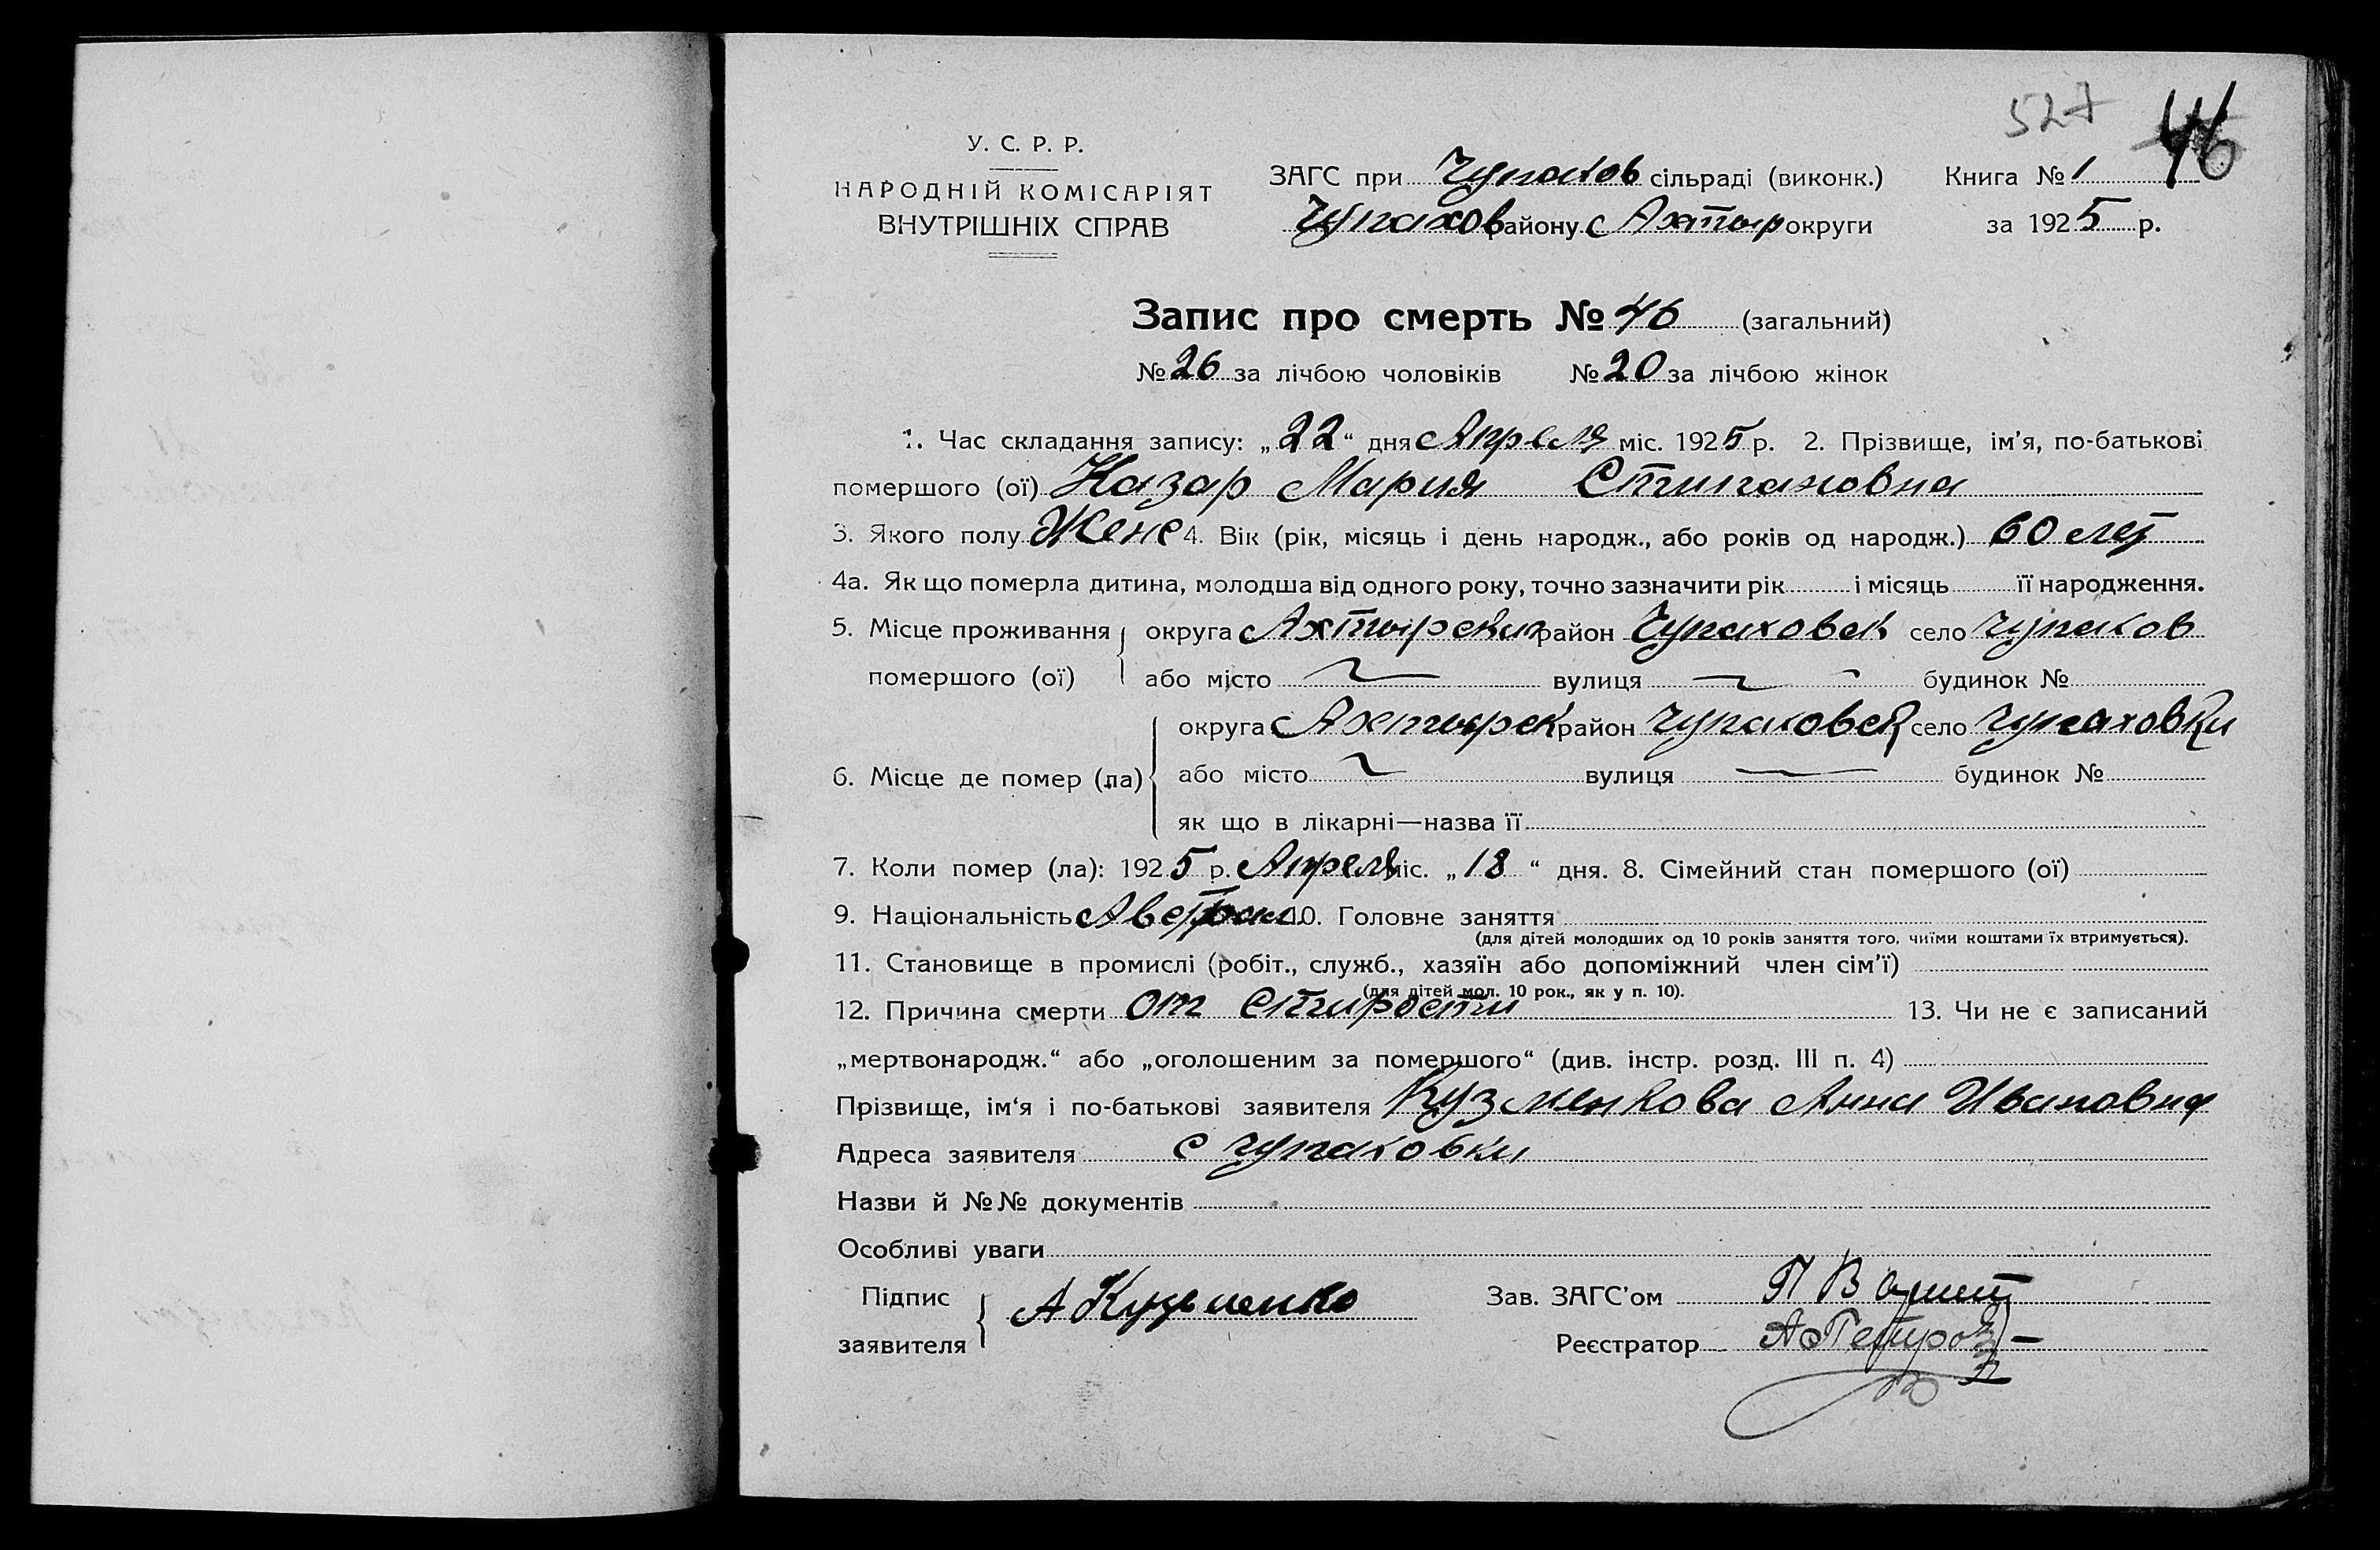 527 46
У. С. Р. Р.
НАРОДНІЙ КОМІСАРІЯТ
ВНУТРІШНІХ СПРАВ
ЗАГС при Чупахов сільраді (виконк.)
Чупахов району Ахтыр округи
Книга № 1
за 1925 р.
Запис про смерть № 46 (загальний)
№ 26 за лічбою чоловіків № 20 за лічбою жінок
1. Час складання запису: „22“ дня Апреля міс. 1925 р. 2. Прізвище, ім'я, по-батькові
помершого (ої) Назар Мария Стипановна
3. Якого полу Женс 4. Вік (рік, місяць і день народж., або років од народж.) 60 лет
4а. Як що померла дитина, молодша від одного року, точно зазначити рік і місяць її народження.
5. Місце проживання округа Ахтырския район Чупаховск село Чупахов
помершого (ої) або місто вулиця будинок №
округа Ахтырск район Чупаховск село Чупаховки
6. Місце де помер (ла) або місто вулиця будинок №
як що в лікарні—назва її
7. Коли помер (ла): 1925 р. Апреля міс. „18“ дня. 8. Сімейний стан помершого (ої)
9. Національність 10. Головне заняття
(для дітей молодших од 10 років заняття того, чиїми коштами їх втримується).
11. Становище в промислі (робіт., служб., хазяїн або допоміжний член сім'ї)
(для дітей мол. 10 рок., як у п. 10).
12. Причина смерти От Стирости 13. Чи не є записаний
„мертвонародж.“ або „оголошеним за помершого“ (див. інстр. розд. III п. 4)
Прізвище, ім'я і по-батькові заявителя Кузменкова Анна Ивановна
Адреса заявителя с Чупаховки
Назви й №№ документів
Особливі уваги
Підпис заявителя А Кузьменко
Зав. ЗАГС'ом П
Реєстратор АПетров